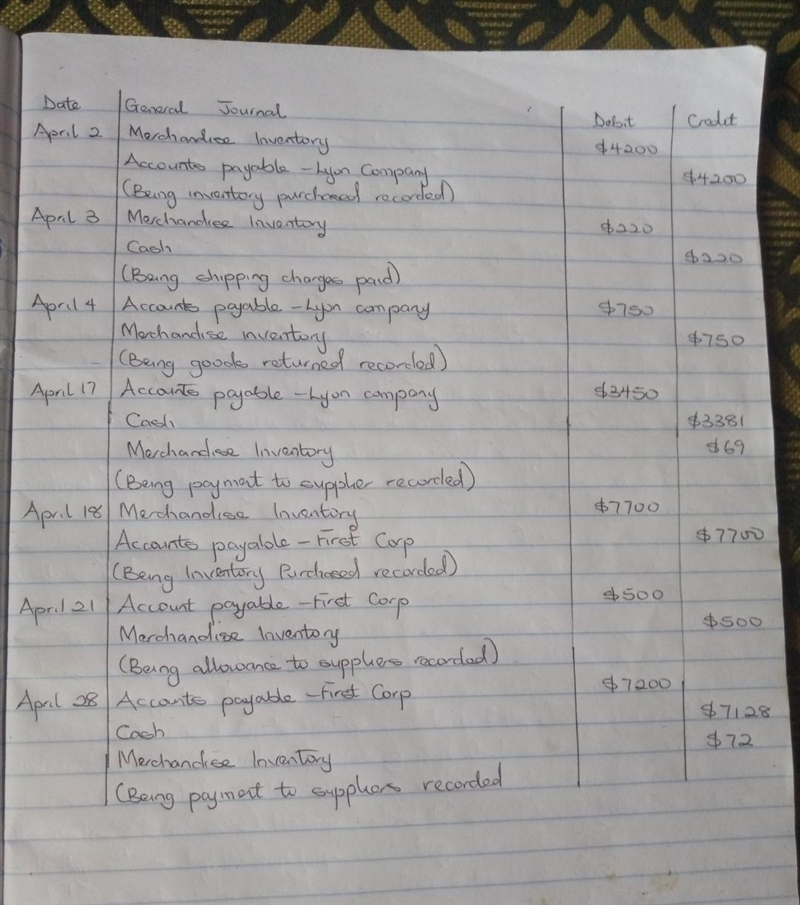 Date General Journal Debit Credit
April 2 Merchandise Inventory $4200
Accounts payable - Lyon Company $4200
(Being inventory purchased recorded)
April 3 Merchandise Inventory $220
Cash $220
(Being shipping charges paid)
April 4 Accounts payable - Lyon company $750
Merchandise inventory $750
(Being goods returned recorded)
April 17 Accounts payable - Lyon company $3450
Cash $3381
Merchandise Inventory $69
(Being payment to supplier recorded)
April 18 Merchandise Inventory $7700
Accounts payable - First Corp $7700
(Being Inventory Purchased recorded)
April 21 Account payable - First Corp $500
Merchandise Inventory $500
(Being allowance to suppliers recorded)
April 28 Accounts payable - First Corp $7200
Cash $7128
Merchandise Inventory $72
(Being payment to suppliers recorded